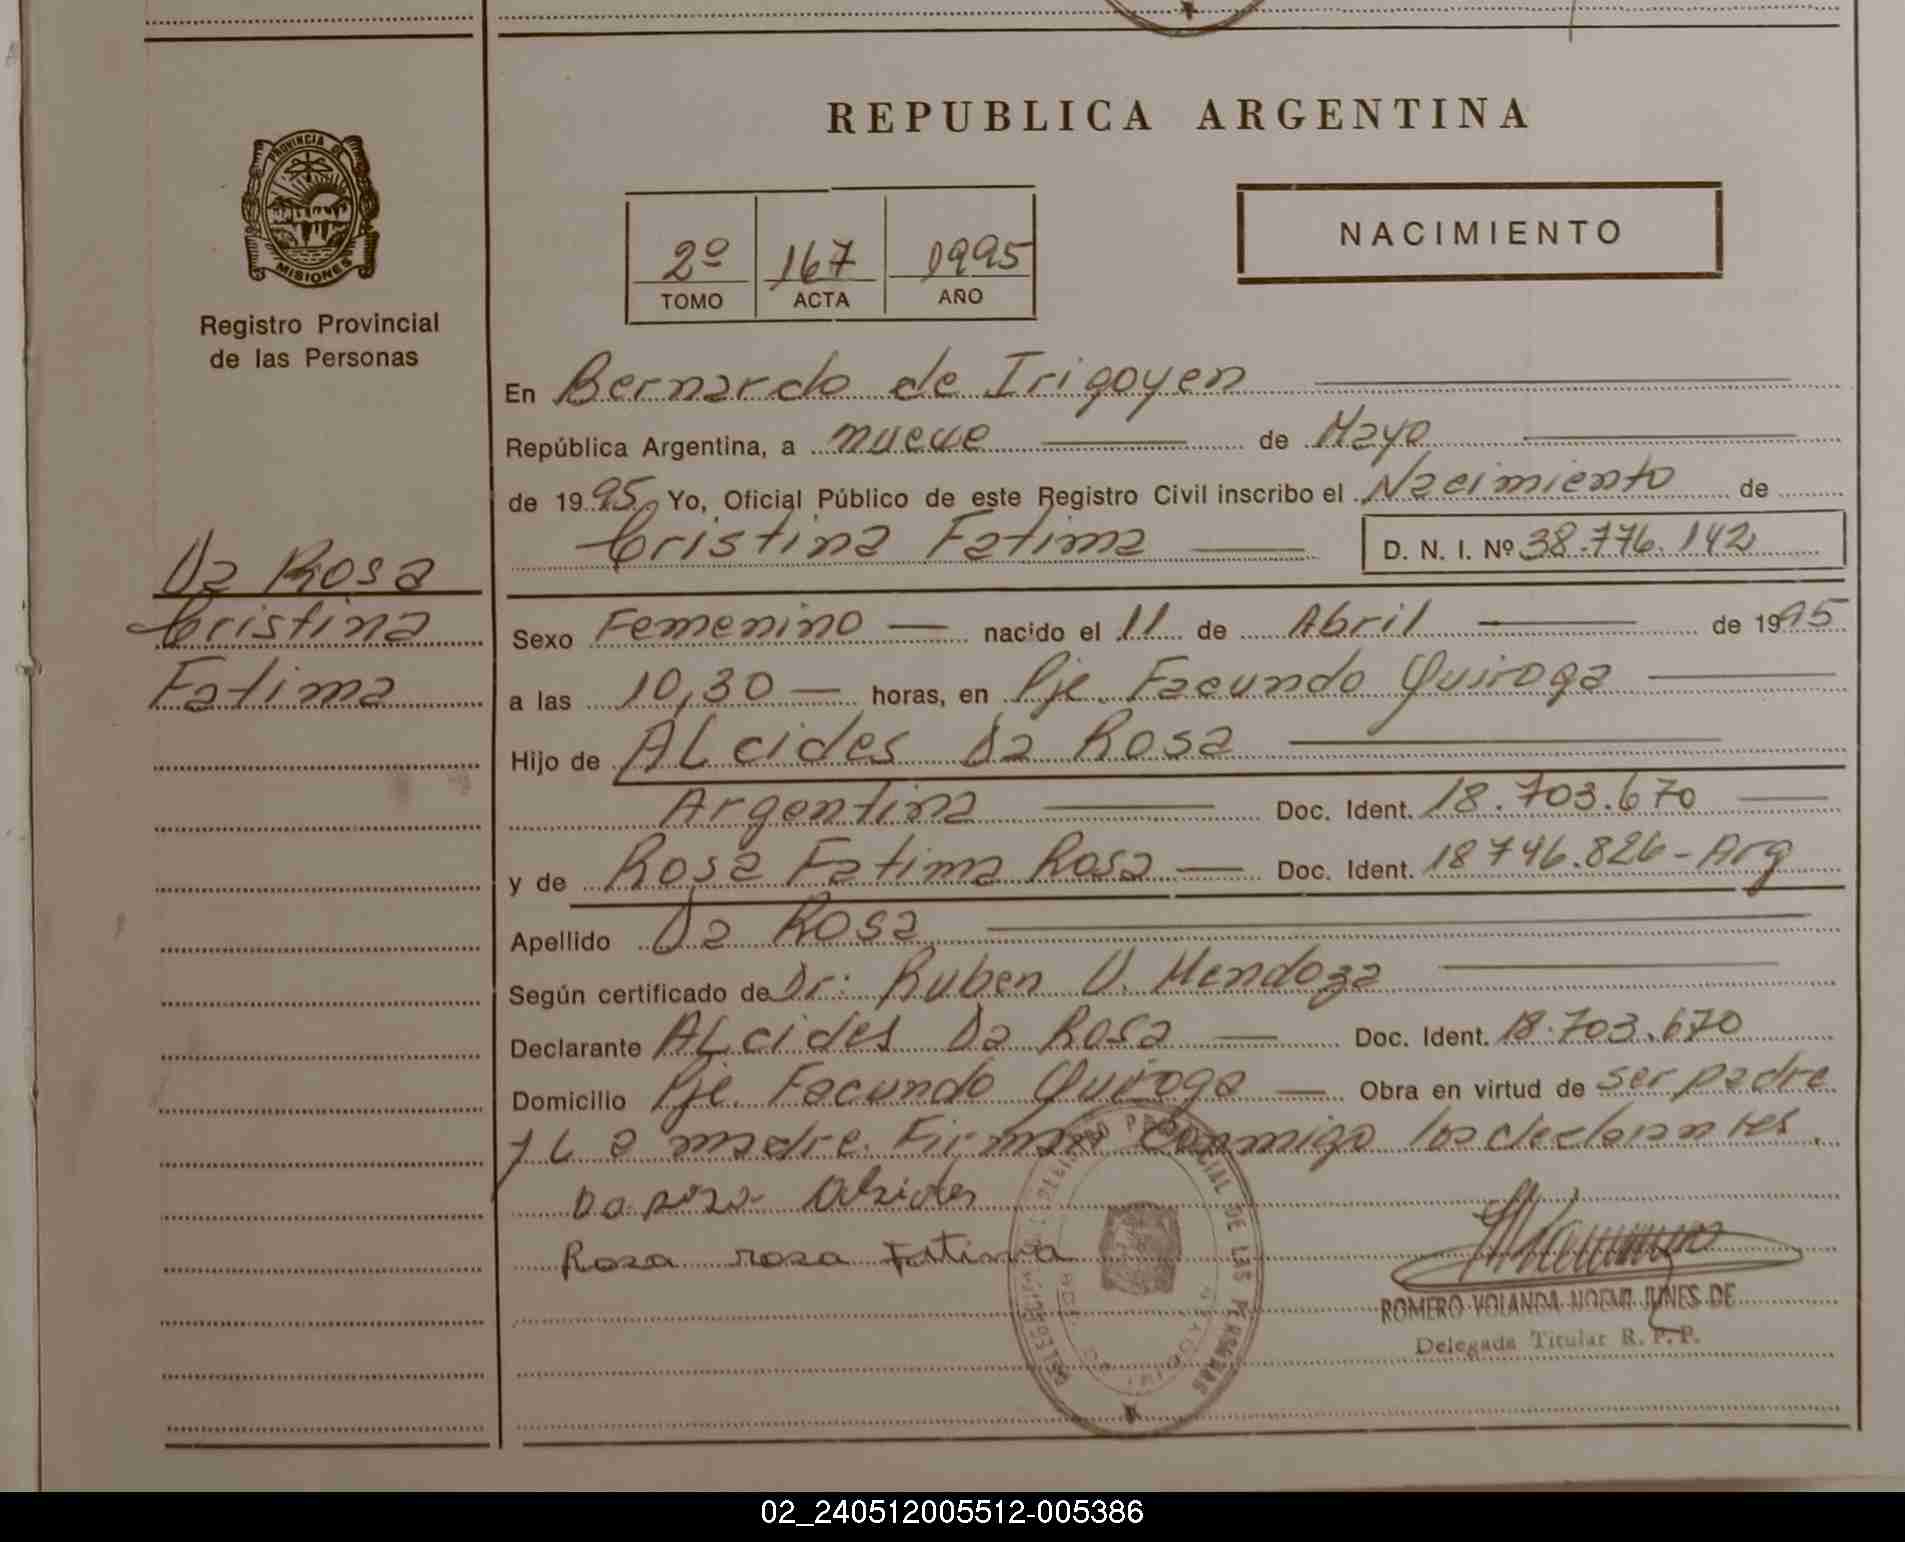 REPUBLICA ARGENTINA
PROVINCIA DE
MISIONES
Registro Provincial
de las Personas
2º 167 1995
TOMO ACTA AÑO
NACIMIENTO
Da Rosa
Cristina
Fatima
En Bernardo de Irigoyen
República Argentina, a nueve de Mayo
de 1995 Yo, Oficial Público de este Registro Civil inscribo el Nacimiento de
Cristina Fatima D. N. I. Nº 38.776.142
Sexo Femenino nacido el 11 de Abril de 1995
a las 10,30 horas, en Pje. Facundo Quiroga
Hijo de ALcides Da Rosa
Argentina Doc. Ident. 18.703.670
y de Rosa Fatima Rosa Doc. Ident. 18746.826-Arg
Apellido Da Rosa
Según certificado de Dr: Ruben D. Mendoza
Declarante ALcides Da Rosa Doc. Ident. 18.703.670
Domicilio Pje. Facundo Quiroga Obra en virtud de ser padre
y La madre. Firman Conmigo los declarantes.
Da rosa Alsides
Rosa rosa Fatima
REGISTRO PROVINCIAL DE LAS PERSONAS
ROMERO YOLANDA NOEMI JUNES DE
Delegada Titular R. P. P.
02_240512005512-005386